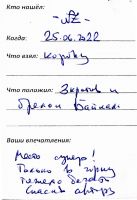 Кто нашёл:
- NZ -
Когда: 25.06.2022
Что взял: корову
Что положил: Значок и
брелок Байкал
Ваши впечатления:
Место супер!
Только в горку
тяжело бежать
Спасибо автору